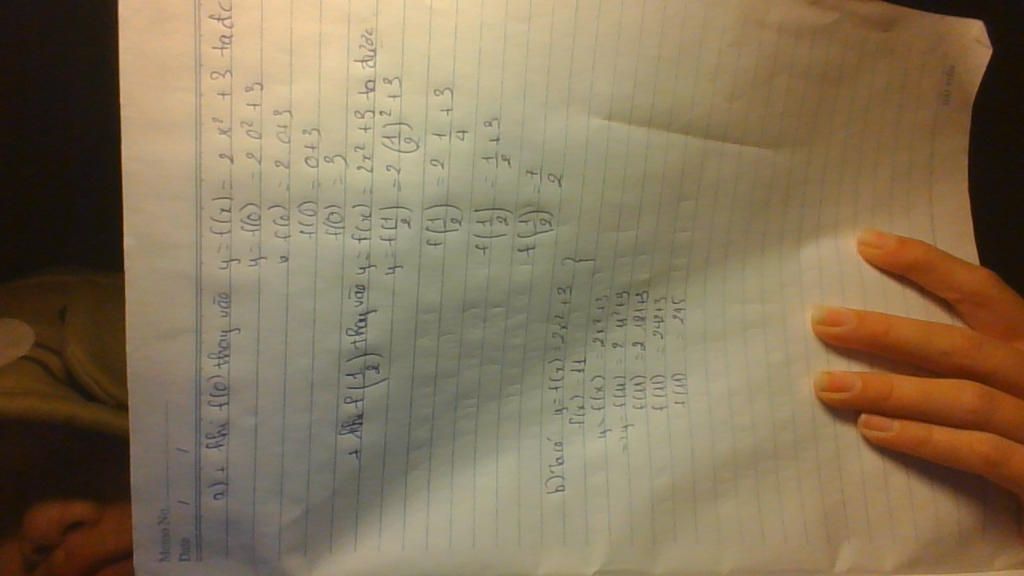 Memo No.
Date / /
a) + Khi f(0) thay vào y = f(x) = 2 x² + 3 ta dc
y = f(0) = 2 0² + 3
f(0) = 2 0+3
f(0) = 0+3
f(0) = 3
+ Khi f(1/2) thay vào y = f(x) = 2x² + 3 ta được
y = f(1/2) = 2 (1/2)² + 3
f(1/2) = 2 1/4 + 3
f(1/2) = 1/2 + 3
f(1/2) = 7/2
b) Ta có y = f(x) 2x² + 3 }
f(x) 11
y = f(x) = 2x²+3
f(11) = 2 11²+3
f(11) = 2 121+3
f(11) = 242+3
f(11) = 245